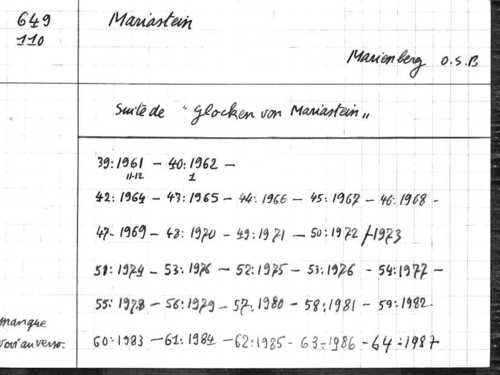 649
110
Mariastein
Marienberg O.S.B
Suite de "Glocken von Mariastein"
39:1961 - 40:1962 -
11-12 1
42:1964 - 43:1965 - 44:1966 - 45:1967 - 46:1968 -
47-1969 - 48:1970 - 49:1971 - 50:1972/1973
51:1974 - 53:1976 - 52:1975 - 53:1976 - 54:1977 -
55:1978 - 56:1979 - 57:1980 - 58:1981 - 59:1982
manque
voir au verso.
60:1983 - 61:1984 - 62:1985 - 63-1986 - 64-1987